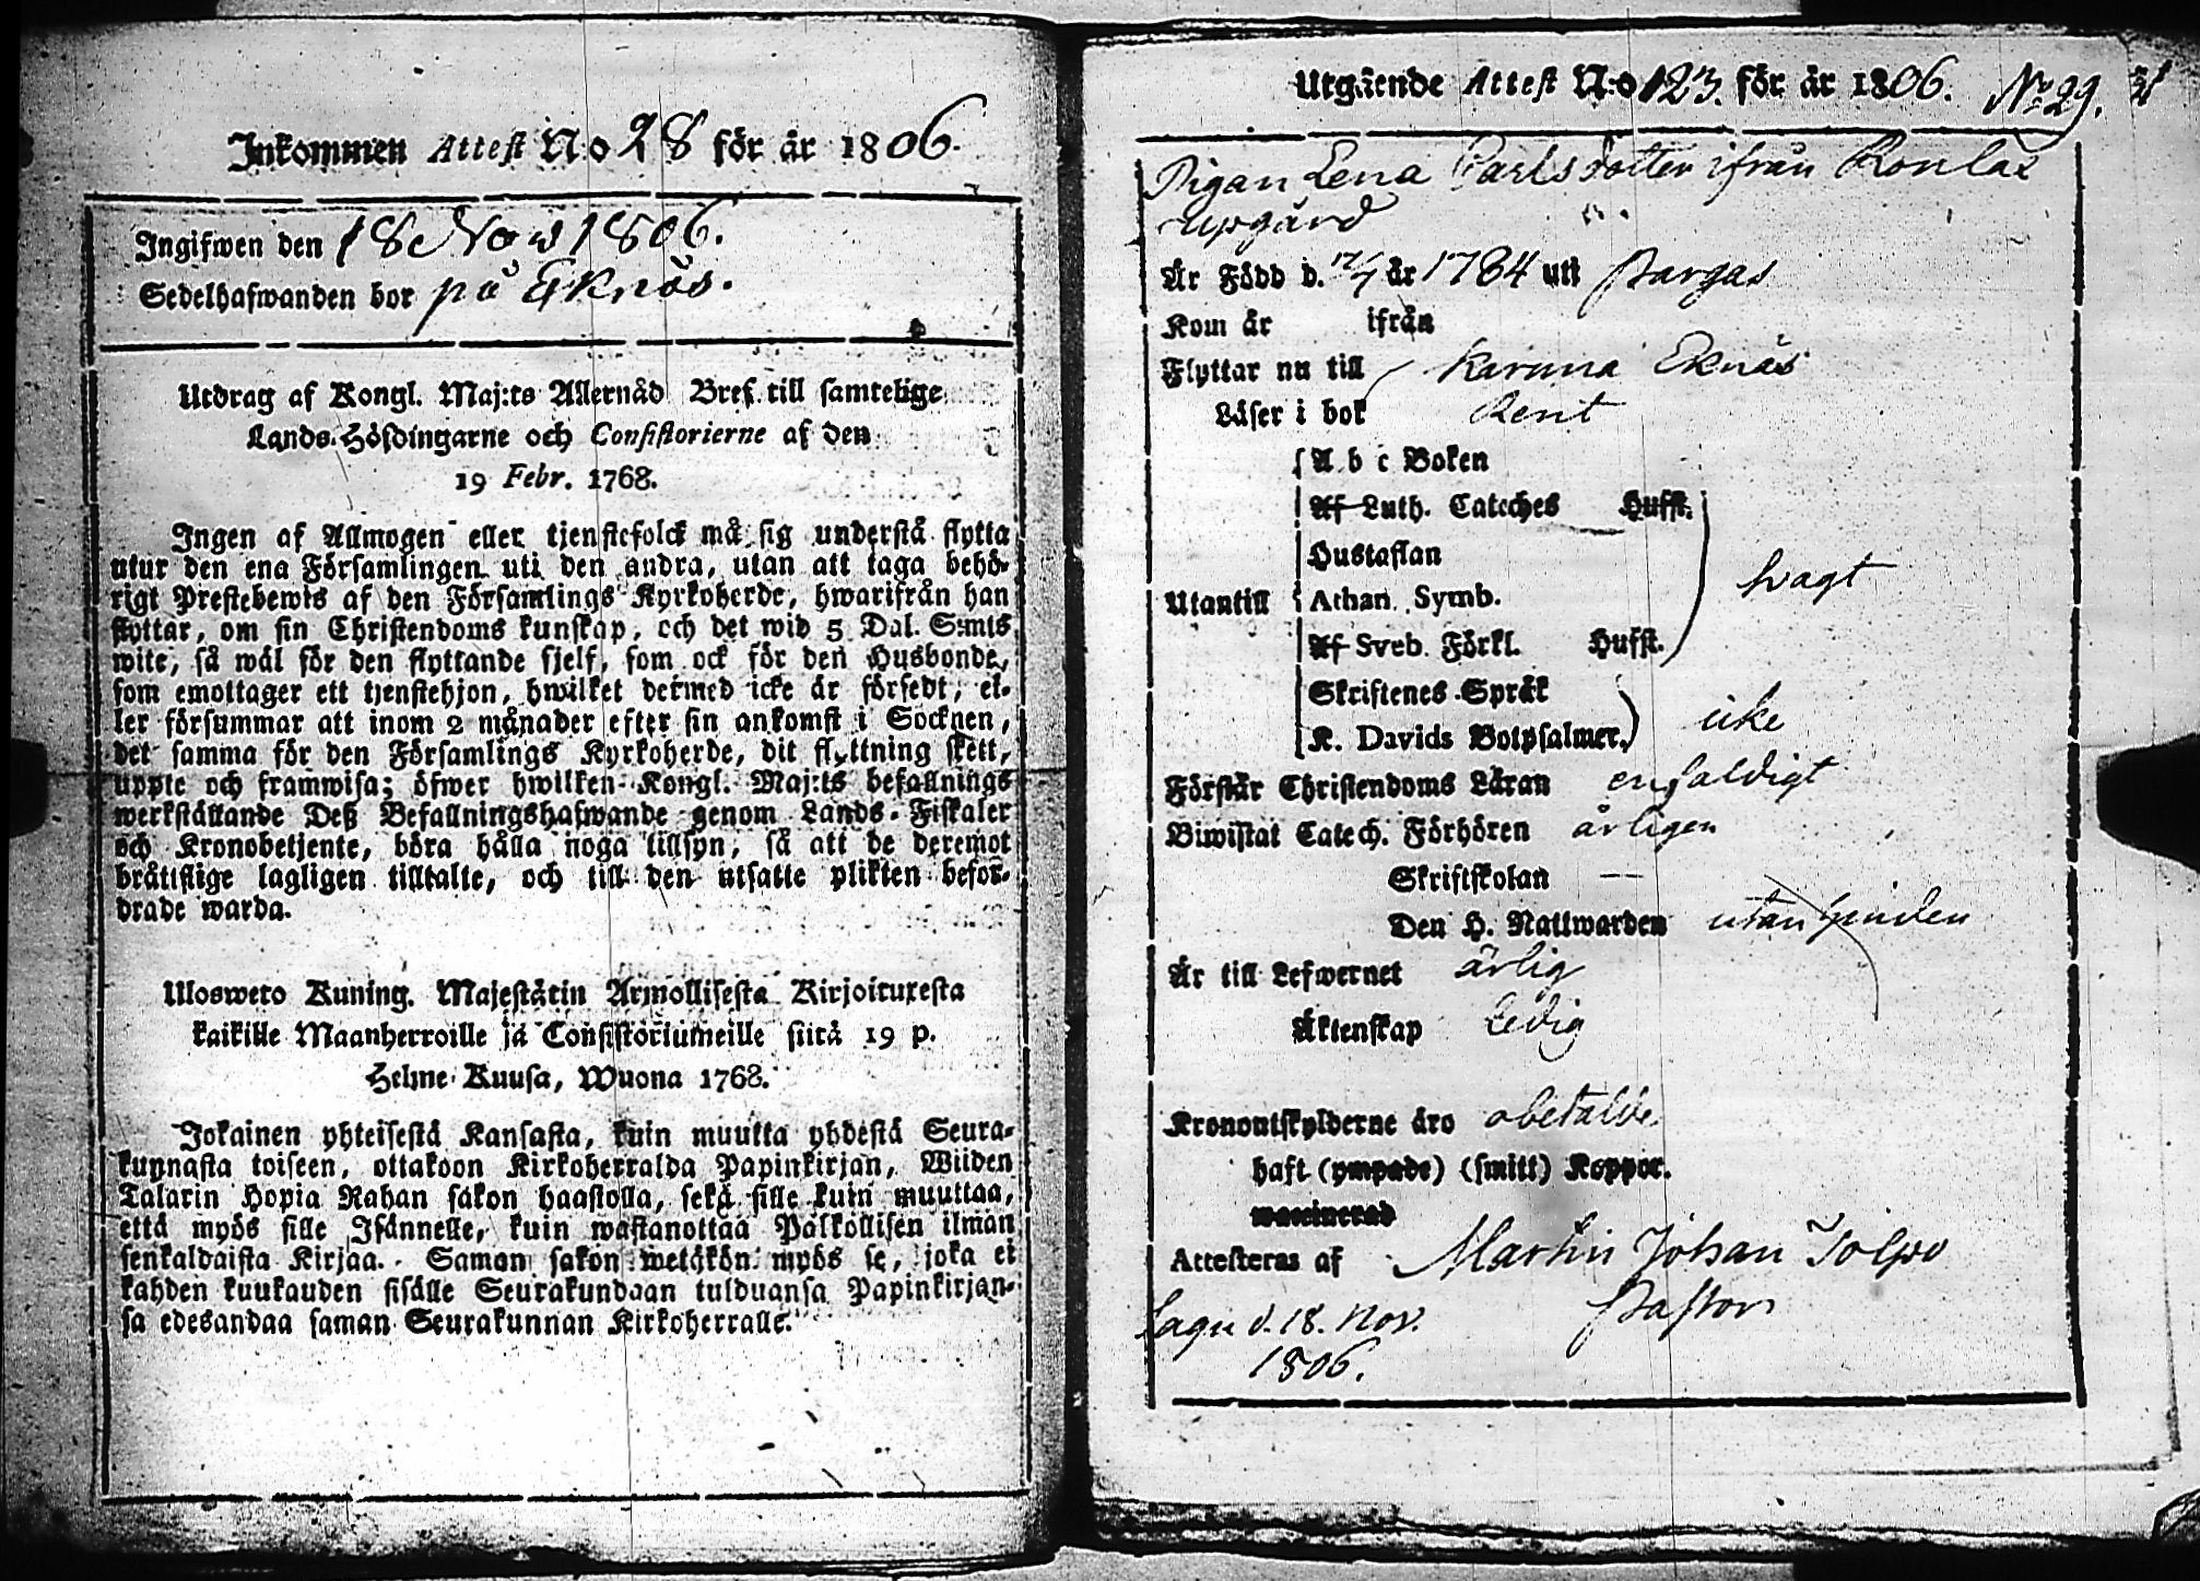 Inkommen Attest No 28 för år 1806.
Ingifwen den 18 Nov 1806.
Sedelhafwanden bor på Eknäs.
Utdrag af Kongl. Maj:ts Allernåd Bref till samtelige
Lands-Höfdingarne och Consistorierne af den
19 Febr. 1768.
Ingen af Allmogen eller tjenstefolck må sig understå flytta
utur den ena Församlingen uti den andra, utan att taga behö-
rigt Prestebewis af den Församlings Kyrkoherde, hwarifrån han
flyttar, om sin Christendoms kunskap, och det wid 5 Dal. S:mts
wite, så wäl för den flyttande sjelf, som ock för den Husbonde,
som emottager ett tjenstehjon, hwilket dermed icke är försedt, el-
ler försummar att inom 2 månader efter sin ankomst i Socknen,
det samma för den Församlings Kyrkoherde, dit flyttning skett,
uppte och framwisa; öfwer hwilken Kongl. Maj:ts befallnings
werkställande Deß Befallningshafwande genom Lands-Fiskaler
och Kronobetjente, böra hålla noga tillsyn, så att de deremot
bråttslige lagligen tilltalte, och till den utsatte plikten befor-
drade warda.
Ulosweto Kuning. Majestätin Armollisesta Kirjoituxesta
kaikille Maanherroille ja Consistoriumeille siitä 19 p.
Helme-Kuusa, Wuona 1768.
Jokainen yhteisestä Kansasta, kuin muutta yhdestä Seura-
kunnasta toiseen, ottakoon Kirkoherralda Papinkirjan, Wiiden
Talarin Hopia Rahan sakon haastolla, sekä sille kuin muuttaa,
että myös sille Isännelle, kuin wastanottaa Palkollisen ilman
senkaldaista Kirjaa. Saman sakon wetäkön myös se, joka ei
kahden kuukauden sisälle Seurakundaan tulduansa Papinkirjan-
sa edesandaa saman Seurakunnan Kirkoherralle.
Utgående Attest N:o 123. för år 1806. No 29.
Pigan Lena Carlsdotter ifrån Ronlax
Upgård
Är Född d. 12/7 år 1784 uti Pargas
Kom år ifrån
Flyttar nu till Karuna Eknäs
Läser i bok Rent
A b c Boken
Af Luth. Cateches Hufst.
Hustaflan
Utantill Athan. Symb. swagt
Af Sveb. Förkl. Hufst.
Skriftenes Språk
K. Davids Botpsalmer. icke
Förstår Christendoms Läran enfaldigt
Biwistat Catech. Förhören årligen
Skriftskolan —
Den H. Nattwarden utan hinder
Är till Lefwernet ärlig
Äktenskap Ledig
Kronoutskylderne äro obetalde
haft (ympade) (smitt) Koppor.
waccinerad
Attesteras af Martin Johan Tolpo
Pastor
Sagu d. 18. Nov.
1806.